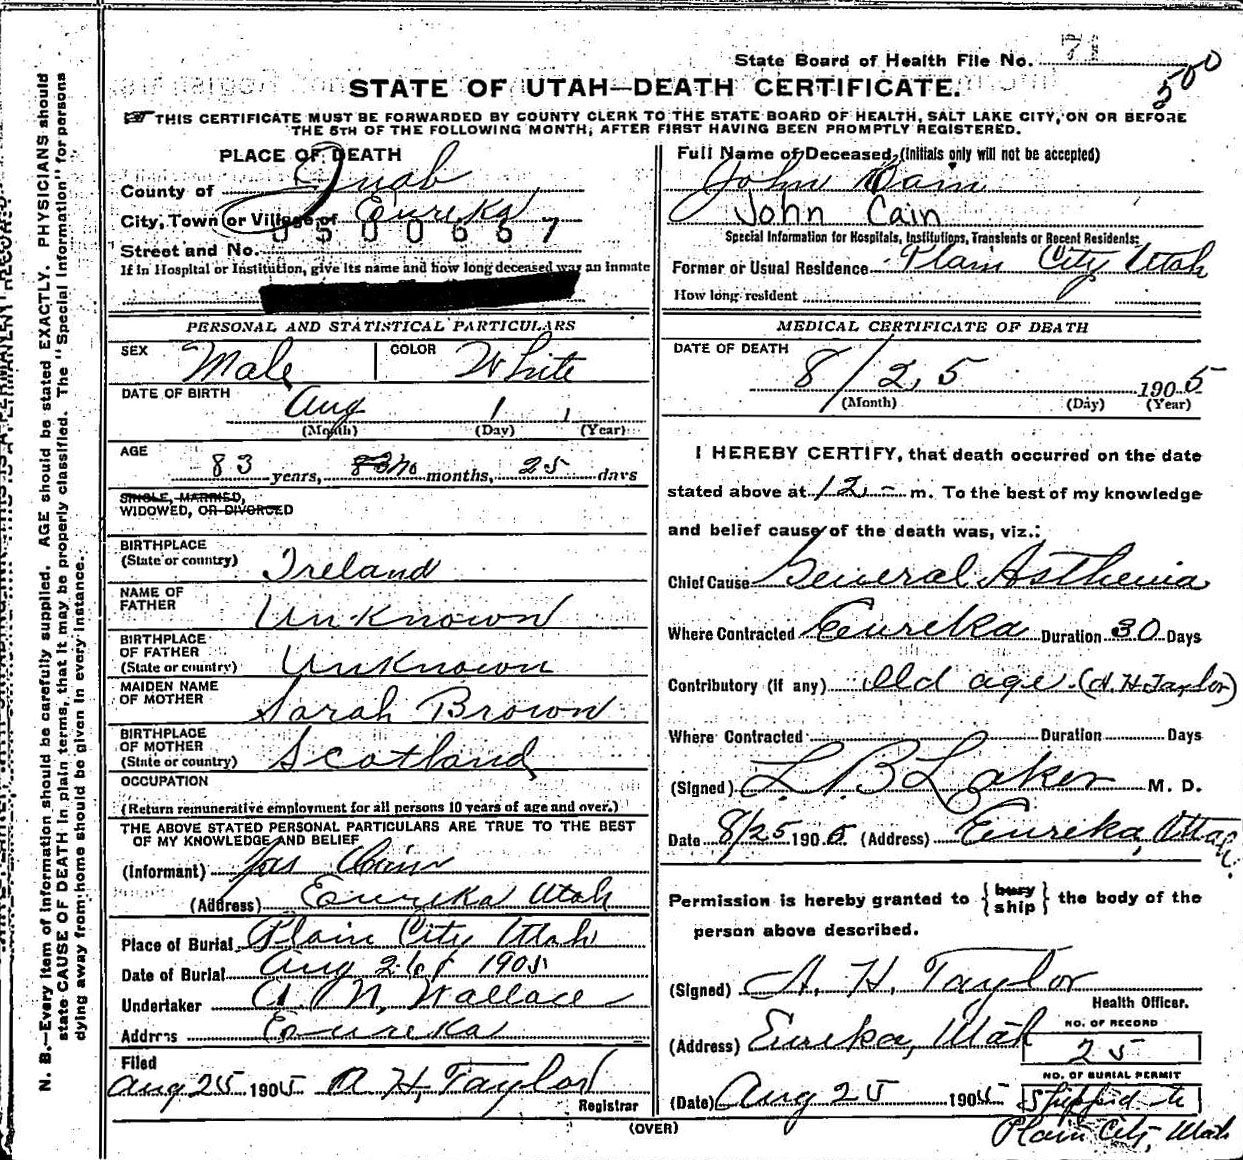 State Board of Health File No. 71
500
STATE OF UTAH—DEATH CERTIFICATE.
THIS CERTIFICATE MUST BE FORWARDED BY COUNTY CLERK TO THE STATE BOARD OF HEALTH, SALT LAKE CITY, ON OR BEFORE
THE 5TH OF THE FOLLOWING MONTH, AFTER FIRST HAVING BEEN PROMPTLY REGISTERED.
PLACE OF DEATH
County of Juab
City, Town (or Village of Eureka
0500667
Street and No.
If in Hospital or Institution, give its name and how long deceased was an Inmate
PERSONAL AND STATISTICAL PARTICULARS
SEX Male COLOR White
DATE OF BIRTH Aug 1
(Month) (Day) (Year)
AGE 83 years, no months, 25 days
SINGLE, MARRIED,
WIDOWED, OR DIVORCED
BIRTHPLACE
(State or country) Ireland
NAME OF
FATHER Unknown
BIRTHPLACE
OF FATHER
(State or country) Unknown
MAIDEN NAME
OF MOTHER Sarah Brown
BIRTHPLACE
OF MOTHER
(State or country) Scotland
OCCUPATION
(Return remunerative employment for all persons 10 years of age and over.)
THE ABOVE STATED PERSONAL PARTICULARS ARE TRUE TO THE BEST
OF MY KNOWLEDGE AND BELIEF
(Informant) Jas Cain
(Address) Eureka Utah
Place of Burial Plain City Utah
Date of Burial Aug 26 1905
Undertaker A. M. Wallace
Address Eureka
Filed
Aug 25 1905 A H Taylor
Registrar
Full Name of Deceased, (Initials only will not be accepted)
John Cain
John Cain
Special Information for Hospitals, Institutions, Transients or Recent Residents:
Former or Usual Residence Plain City Utah
How long resident
MEDICAL CERTIFICATE OF DEATH
DATE OF DEATH
8/25 1905
(Month) (Day) (Year)
I HEREBY CERTIFY, that death occurred on the date
stated above at 12 - m. To the best of my knowledge
and belief cause of the death was, viz.:
Chief Cause General Asthenia
Where Contracted Eureka Duration 30 Days
Contributory (if any) Old age. (A. H. Taylor)
Where Contracted Duration Days
(Signed) L. B. Laker M. D.
Date 8/25 1905 (Address) Eureka, Utah.
Permission is hereby granted to {bury ship} the body of the
person above described.
(Signed) A. H. Taylor
Health Officer.
(Address) Eureka, Utah
NO. OF RECORD
25
NO. OF BURIAL PERMIT
(Date) Aug 25 1905 Shippid to
Plain City, Utah
(OVER)
N. B.—Every item of information should be carefully supplied. AGE should be stated EXACTLY. PHYSICIANS should
state CAUSE OF DEATH in plain terms, that it may be properly classified. The "Special Information" for persons
dying away from home should be given in every instance.